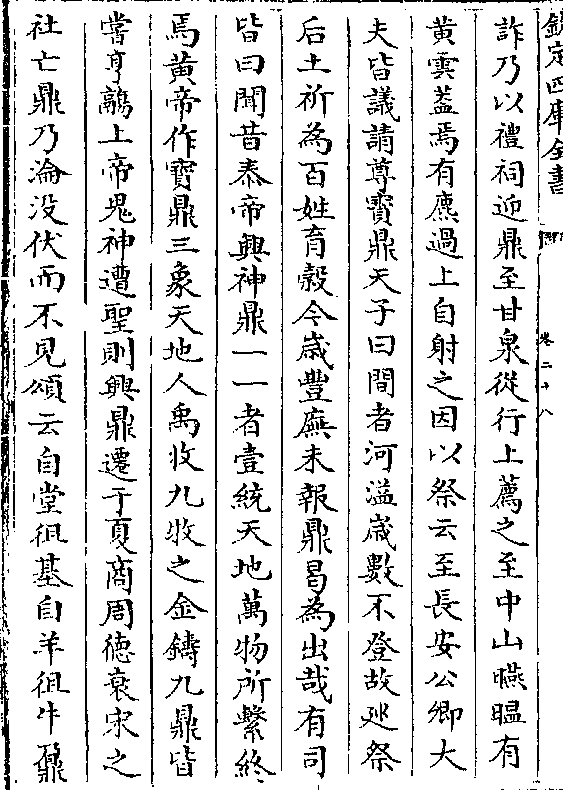 欽定四庫全書
卷二十八
詐乃以禮祠迎鼎至甘泉從行上薦之至中山曣㬈有
黃雲葢焉有麃過上自射之因以祭云至長安公卿大
夫皆議請尊寳鼎天子曰間者河溢嵗數不登故廵祭
后土祈為百姓育榖今嵗豐廡未報鼎曷為出哉有司
皆曰聞昔泰帝興神鼎一一者壹統天地萬物所繫終
焉黃帝作寳鼎三象天地人禹收九牧之金鑄九鼎皆
嘗亨鬺上帝鬼神遭聖則興鼎遷于夏商周徳衰宋之
社亡鼎乃淪没伏而不見頌云自堂徂基自羊徂牛鼐